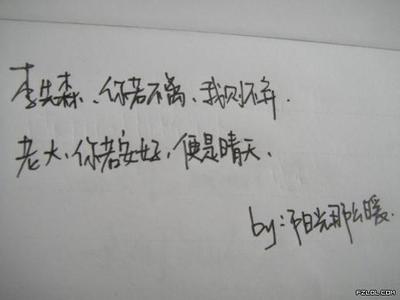 李先森、你若不离、我则不弃.
老大、你若安好、便是晴天、
by:阳光那么暖.
PZLBL.COM